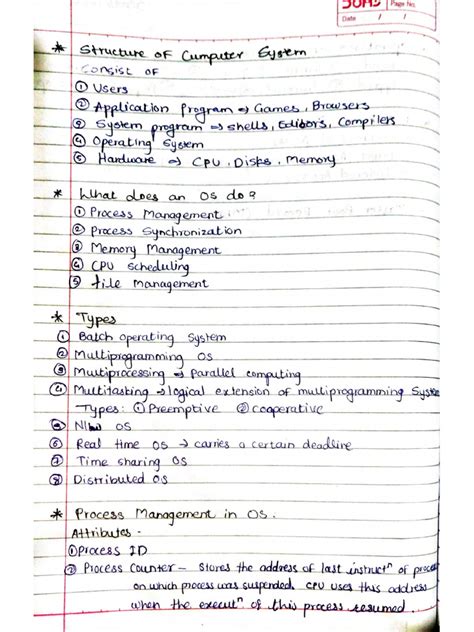 SOHS Page No.
Date / /
* Structure of Cumputer System
Consist of
① Users
② Application program => Games, Browsers
③ System program => shells, Editors, Compilers
④ Operating System
⑤ Hardware => CPU, Disks, Memory
* What does an OS do?
① Process Management
② Process Synchronization
③ Memory Management
④ CPU scheduling
⑤ file Management
* Types
① Batch operating System
② Multiprogramming OS
③ Multiprocessing => Parallel computing
④ Multitasking → logical extension of multiprogramming System
Types: ① Preemptive ② cooperative
⑤ N/w OS
⑥ Real time OS → carries a certain deadline
⑦ Time sharing OS
⑧ Distributed OS
* Process Management in OS.
Attributes -
① Process ID
② Process Counter - Stores the address of last instructⁿ of process
on which process was suspended. CPU uses this address
when the executⁿ of this process resumed.